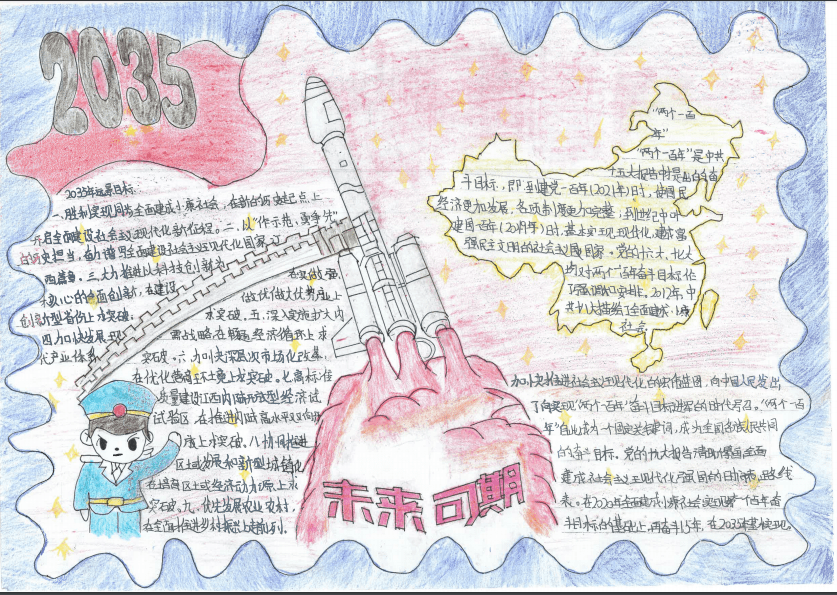 2035
2035年远景目标
一、胜利实现同步全面建成小康社会,在新的历史起点上
开启全面建设社会主义现代化新征程。二、以"作示范、勇争先"
的历史担当,奋力谱写全面建设社会主义现代化国家江
西篇章。三、大力推进以科技创新为
核心的全面创新,在建设
创新型省份上求突破。
四、加快发展现
代产业体系
在实做强、
做优做大优势产业上
求突破。五、深入实施扩大内
需战略,在畅通经济循环上求
突破。六、加快深层次市场化改革,
在优化营商环境上求突破。七、高标准
高质量建设江西内陆开放型经济试
试验区,在推进内陆高水平双向开
放上求突破。八、协同推进
区域发展和新型城镇化
在培育区域经济动力源上求
突破。九、优先发展农业农村,
在全面推进乡村振兴上走前列。
未来可期
"两个一百
年"
"两个一百年"是中共
十五大报告中提出的奋
斗目标,即:到建党一百年(2021年)时,使国民
经济更加发展,各项制度更加完善;到世纪中叶
建国一百年(2049年)时,基本实现现代化,建成富
强民主文明的社会主义国家。党的十六大、十七大
均对两个一百年奋斗目标作
了强调和安排。2012年,中
共十八大描绘了全面建成小康
社会
加快推进社会主义现代化的宏伟蓝图,向中国人民发出
了向实现"两个一百年"奋斗目标进军的时代号召。"两个一百
年"自此成为一个固定关键词,成为全国各族人民共同
的奋斗目标。党的十九大报告清晰擘画全面
建成社会主义现代化强国的时间表、路线
表,在2020年全面建成小康社会实现第一个百年奋
斗目标的基础上,再奋斗15年,在2035年基本实现。